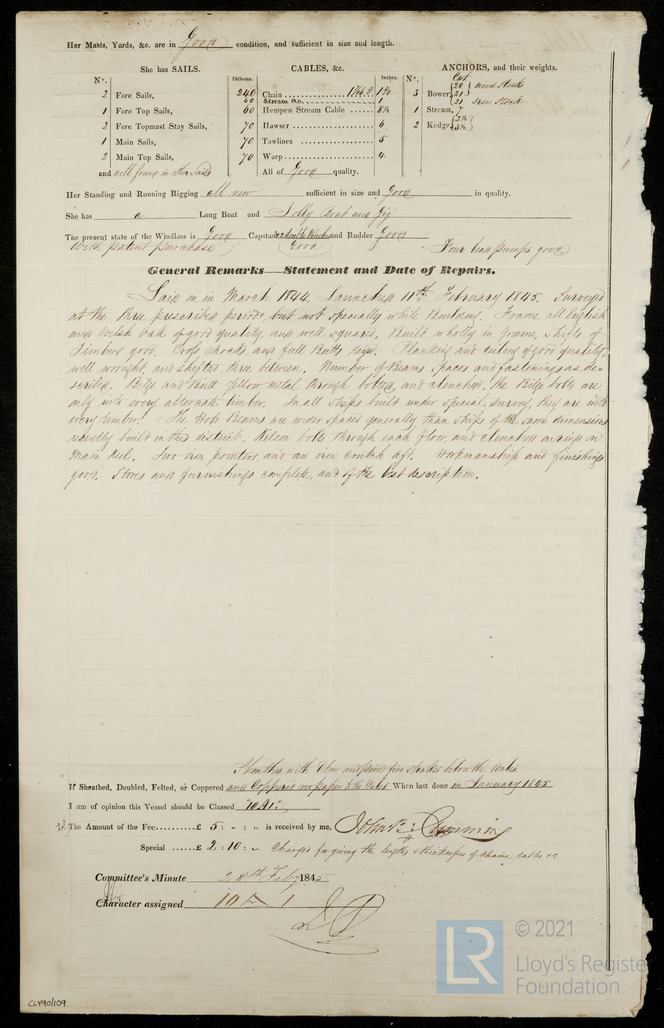 Her Masts, Yards, &c. are in Good condition, and sufficient in size and length.
She has SAILS. CABLES, &c. ANCHORS, and their weights.
No. Fathoms. Inches. No. Cwt
2 Fore Sails, 240 Chain 1 3 Bower, 20 wood Stocks
60 Stream do. 1 21
1 Fore Top Sails, 60 Hempen Stream Cable 8½ 21 Iron Stock
2 Fore Topmast Stay Sails, 70 Hawser 6 1 Stream, 7
1 Main Sails, 70 Towlines 5 2 Kedge,
2 Main Top Sails, 70 Warp 4
and well found in other Sails All of Good quality.
Her Standing and Running Rigging All new sufficient in size and Good in quality.
She has a Long Boat and Jolly Boat and Gig
The present state of the Windlass is Good Capstan & 2 double Winches and Rudder Good
With patent purchase Good Four lead pumps good
General Remarks—Statement and Date of Repairs.
Laid on in March 1844, Launched 11th February 1845. Surveyed
at the three prescribed periods, but not specially while Building. Frame all English
and Welsh oak of good quality, and well squared. Built wholly in frames, Shifts of
Timbers good. Cross chocks and full Butts Keyed. Planking and ceiling of good quality,
well wrought, and shifted three between. Number of Beams spaces and fastenings as de-
scribed. Bilge and Butt yellow metal through bolted, and clenched, the Bilge bolts are
only into every alternate timber. Small Ships built under special survey, they are into
every timber. The Hold Beams are wider spaced generally than Ships of the same dimensions
recently built in this district. Kelson bolts through each floor, and clenched on rings on
Main Keel. Two iron pointers and an iron crutch aft. Workmanship and finishings
good. Stores and furnishings complete, and of the best description.
Sheathed with Elm and pine five strakes below the Wales
If Sheathed, Doubled, Felted, or Coppered and Coppered over paper to the Wales When last done in January 1845
I am of opinion this Vessel should be Classed "10 A1"
The Amount of the Fee £ 5 : " : " is received by me, John B: Cumming
Special £ 2 : 10 : " Charges for giving the lengths thicknesses of chains, cables &c
Committee's Minute 28th Feby 1845
Character assigned 10 A 1
CLY90/109
LR
© 2021
Lloyd's Register
Foundation